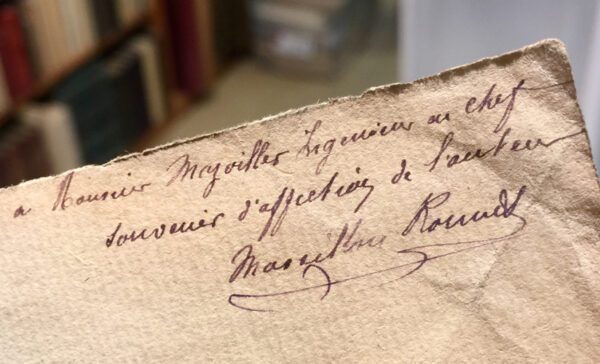 a Monsieur Meyviller Ingenieur en chef
souvenir d'affection de l'auteur
Massillon Rouvet